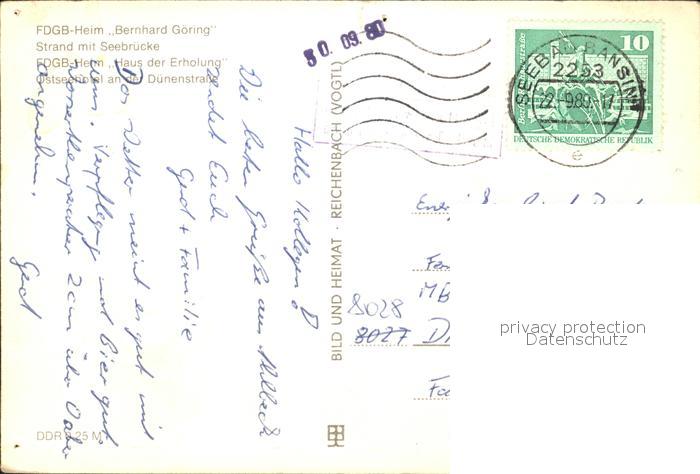 FDGB-Heim „Bernhard Göring"
Strand mit Seebrücke
FDGB-Heim „Haus der Erholung"
Ostseehotel an der Dünenstraße
30. 09. 80
10
DEUTSCHE DEMOKRATISCHE REPUBLIK
SEEBAD BANSIN
2253
22.-9.80.-17
e
Hallo Kollegen!
Die besten Grüße aus
sendet Euch
Gerd + Familie
Das Wetter meint es gut mit
uns. Verpflegung und Bier gut.
2 cm über
angenehm.
Gerd
BILD UND HEIMAT · REICHENBACH (VOGTL)
8028
8027 D
MB
privacy protection
Datenschutz
DDR 0,25 M